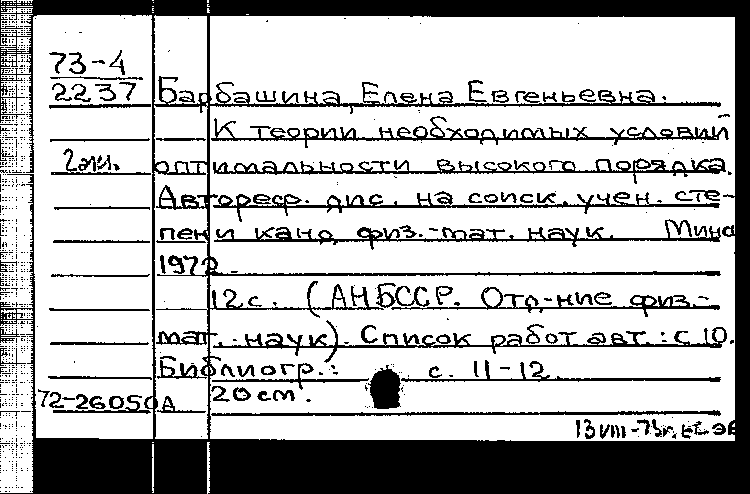 73-4
2237 Барбашина, Елена Евгеньевна.
К теории необходимых условий
2 экз. оптимальности высокого порядка.
Автореф. дис. на соиск. учен. сте-
пени канд. физ.-мат. наук.
1972.
12 с. (АН БССР. Отд-ние физ.-
мат. наук). Список работ авт.: с 10.
Библиогр.: с. 11-12.
72-26050А 20 см.